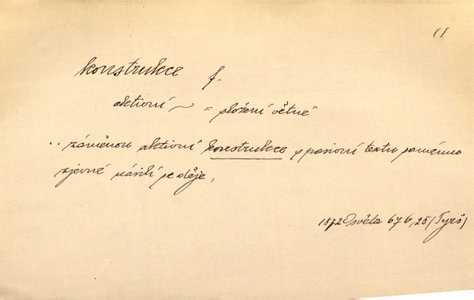 11
konstrukce f.
aktivní ~ = složení větné
.. záměnou aktivní konstrukce s pasivní textu samému
zjevné násilí se děje,
1872 Osvěta 676, 28 (Tyrš)